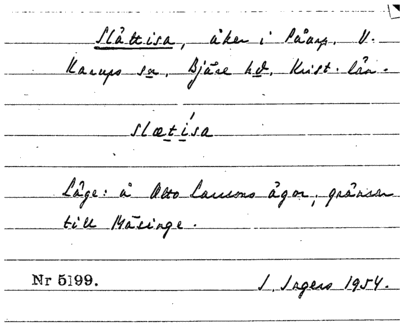 Slåttisa, åker i Påarp, V.
Karups sn, Bjäre hd, Krist. län.
slætísa
Läge: å Otto Larssons ägor, gränsar
till Båsinge.
Nr 5199.
I. Ingers 1954.